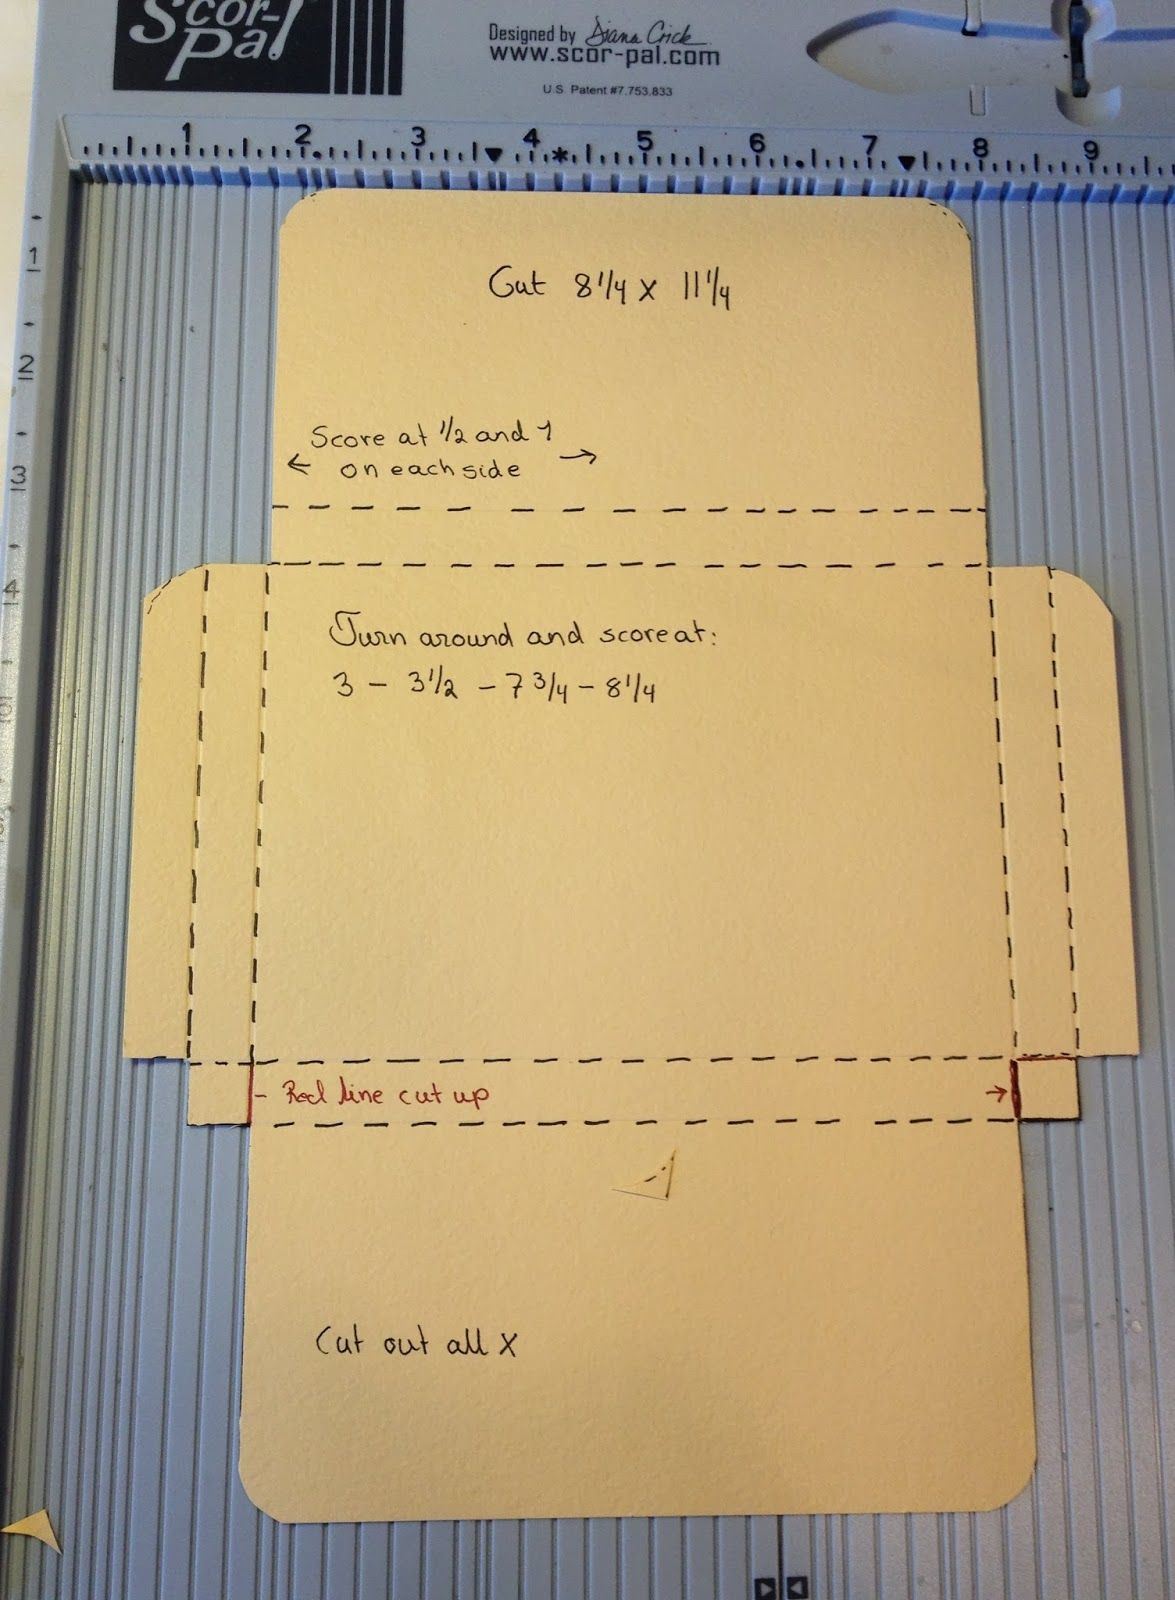 Scor-
Pal
Designed by Diana Crick
www.scor-pal.com
U.S. Patent #7,753,833
1 2 3 4 5 6 7 8 9
1
2
3
4
Cut 8 1/4 x 11 1/4
Score at 1/2 and 1
← on each side →
Turn around and score at:
3 - 3 1/2 - 7 3/4 - 8 1/4
- Red line cut up →
Cut out all X